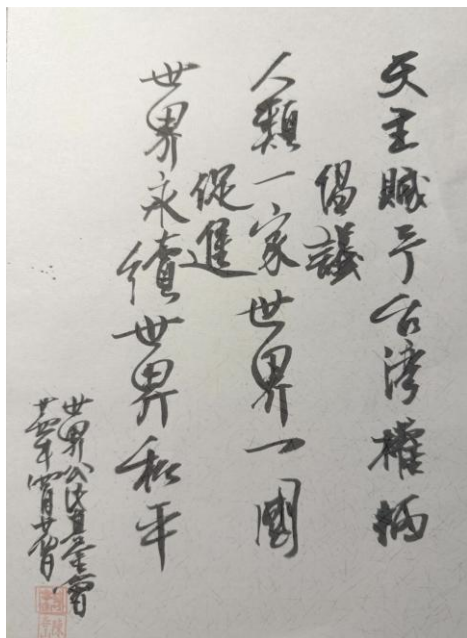 天主賦予台湾權柄
倡議
人類一家世界一國
促進
世界永續世界和平
世界公民基金會